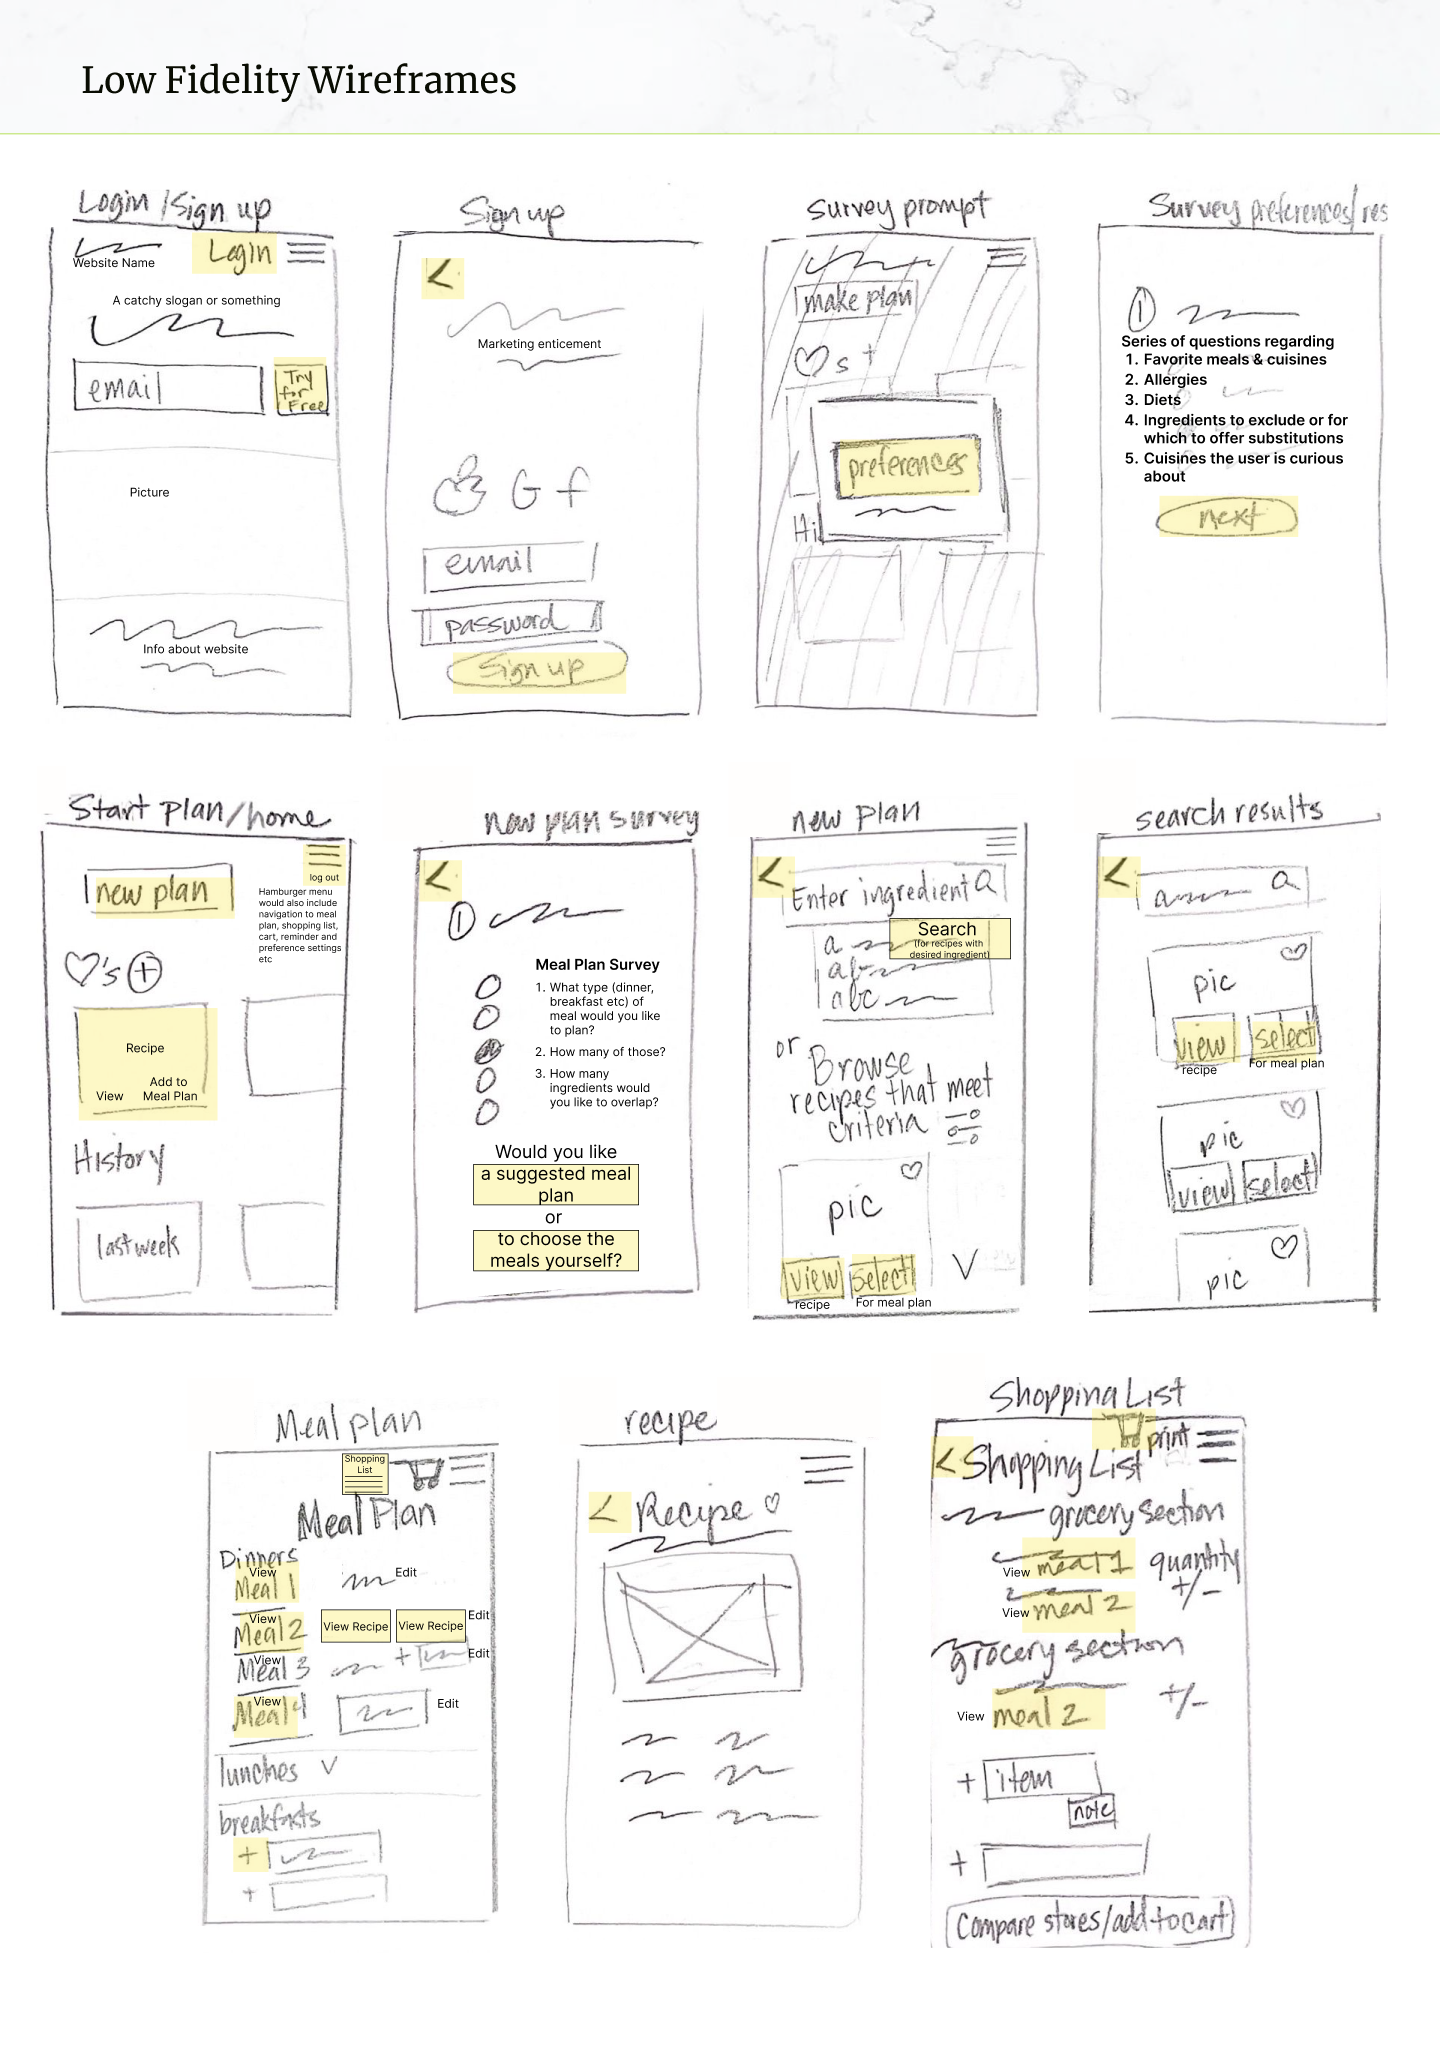 Low Fidelity Wireframes
Login/Sign up
Website Name
Login
A catchy slogan or something
email
Try
for
Free
Picture
Info about website
Sign up
<
Marketing enticement
G f
email
password
Sign up
survey prompt
make plan
♡s +
preferences
Hi
Survey preferences/res
1
Series of questions regarding
1. Favorite meals & cuisines
2. Allergies
3. Diets
4. Ingredients to exclude or for
which to offer substitutions
5. Cuisines the user is curious
about
next
Start plan/home
new plan
log out
Hamburger menu
would also include
navigation to meal
plan, shopping list,
cart, reminder and
preference settings
etc
♡'s +
Recipe
View
Add to
Meal Plan
History
last week
new plan survey
<
1
Meal Plan Survey
1. What type (dinner,
breakfast etc) of
meal would you like
to plan?
2. How many of those?
3. How many
ingredients would
you like to overlap?
Would you like
a suggested meal
plan
or
to choose the
meals yourself?
new plan
<
Enter ingredient
Search
(for recipes with
desired ingredient)
a
ab
abc
or Browse
recipes that meet
criteria
pic
view select
recipe For meal plan
V
search results
<
a
pic
view select
recipe For meal plan
pic
view select
pic
Meal plan
Shopping
List
Meal Plan
Dinners
View
Meal 1
Edit
View
Meal 2
View Recipe View Recipe
Edit
View
Meal 3
+
Edit
View
Meal 4
Edit
lunches V
breakfasts
+
+
recipe
< Recipe ♡
Shopping List
print
< Shopping List
grocery section
View meal 1 quantity
+/-
View meal 2
grocery section
View meal 2 +/-
+ item
note
+
Compare stores/add to cart